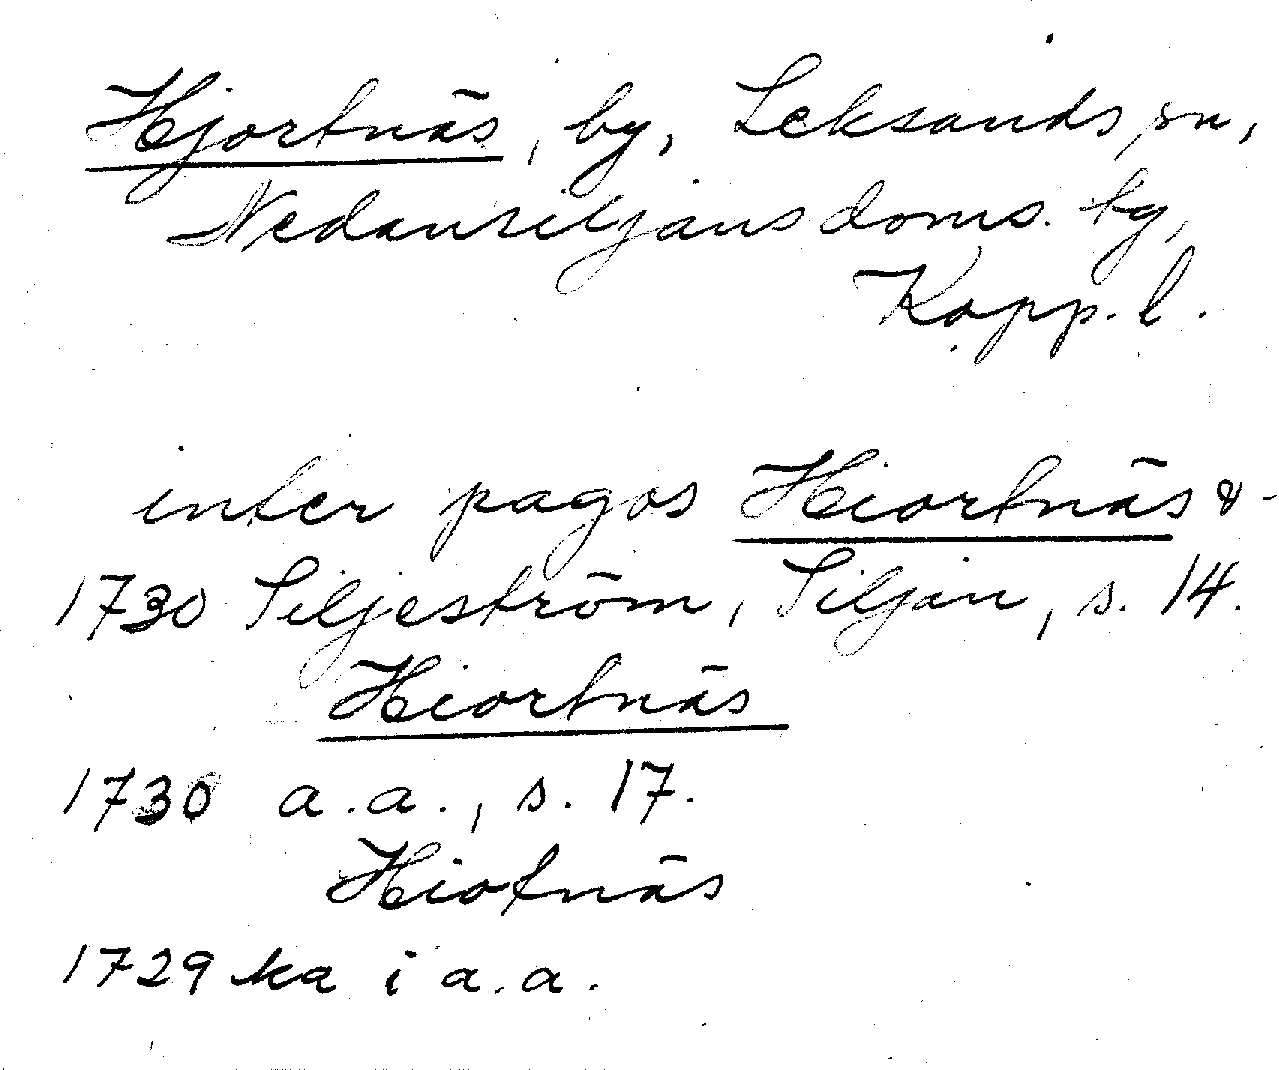 Hjortnäs, by, Leksands sn,
Nedansiljans doms. tg,
Kopp. l.
inter pagos Hiortnäs &-
1730 Siljeström, Siljan, s. 14.
Hiortnäs
1730 a.a., s. 17.
Hiotnäs
1729 ka i a.a.